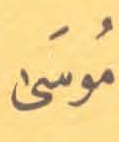 مُوسَىٰ